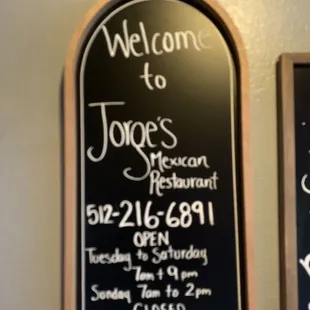 Welcome
to
Jorge's
Mexican
Restaurant
512-216-6891
OPEN
Tuesday to Saturday
7am + 9pm
Sunday 7am to 2pm
CLOSED